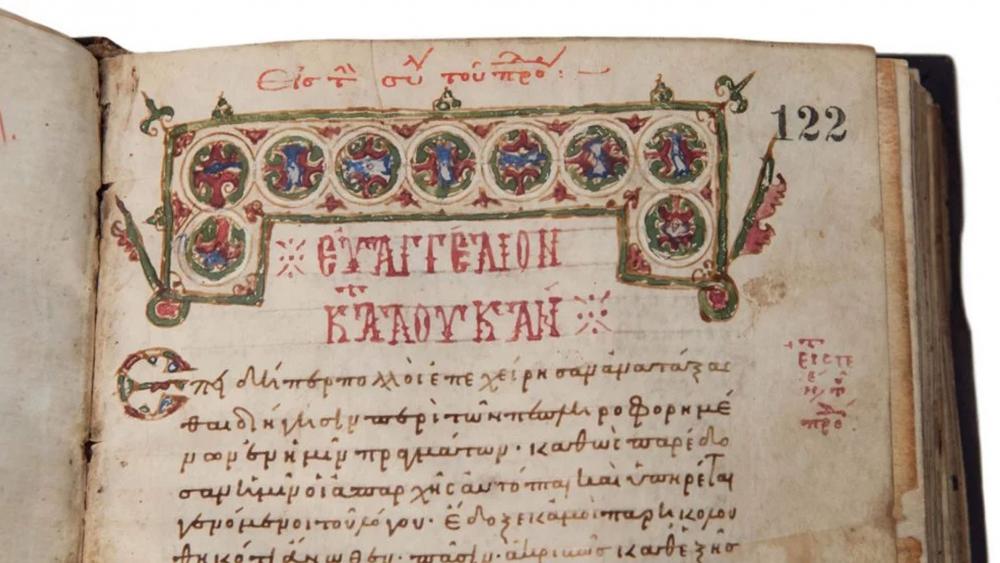 Εἰς τ συ τοῦ προ :
122
ΕΥΑΓΓΕΛΙΟΝ
ΚΑΤΑ ΛΟΥΚΑΝ
Ἐπειδήπερ πολλοὶ ἐπεχείρησαν ἀνατάξας
θαι διήγησιν περὶ τῶν πεπληροφορημέ
νων ἐν ἡμῖν πραγμάτων· καθὼς παρέδο
σαν ἡμῖν οἱ ἀπαρχῆς αὐτόπται καὶ ὑπηρέται
γενόμενοι τοῦ λόγου· ἔδοξε κἀμοὶ παρηκολου
θηκότι ἄνωθεν· πᾶσιν· ἀκριβῶς καθεξῆς